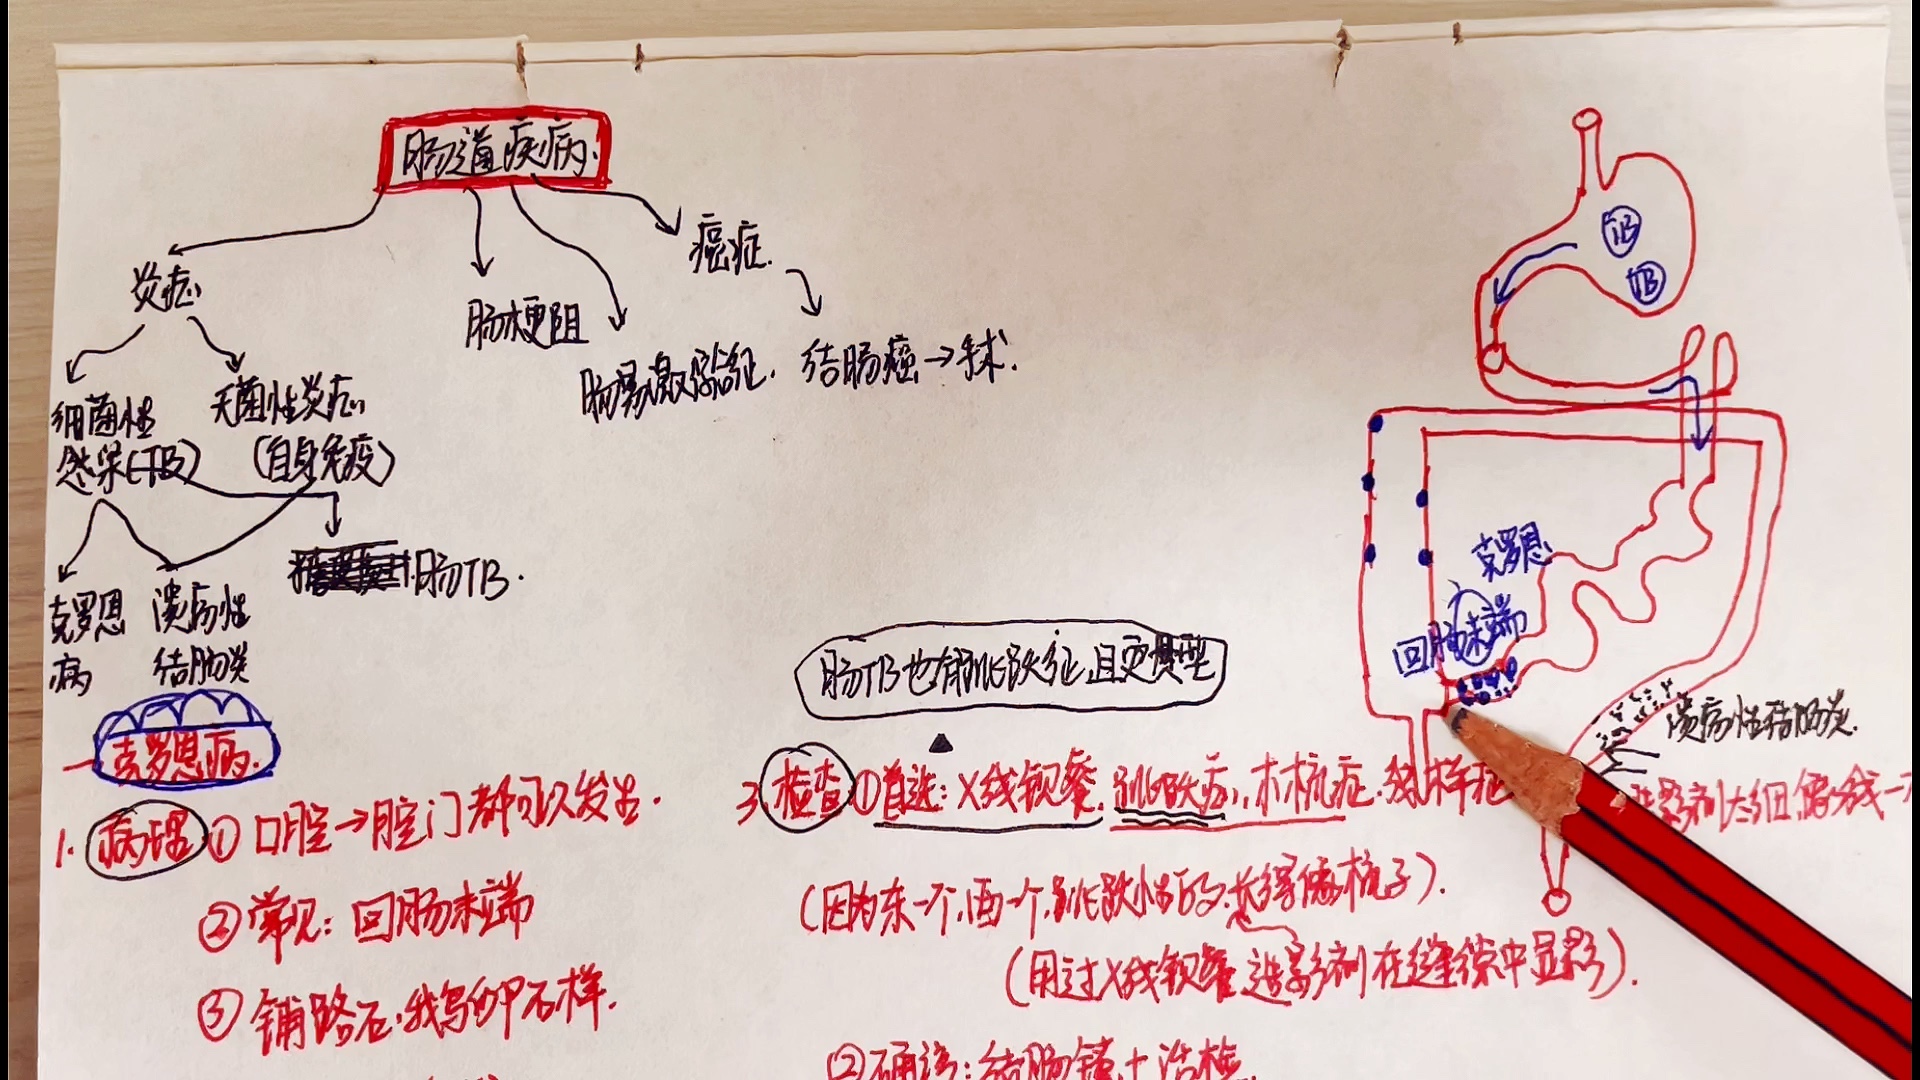 肠道疾病
炎症
肠梗阻
肠易激综合征
癌症
结肠癌→手术
细菌性
感染(TB)
无菌性炎症
(自身免疫)
克罗恩
病
溃疡性
结肠炎
肠TB
一克罗恩病
1. 病理 ①口腔→肛门都可以发生
②常见:回肠末端
③铺路石、鹅卵石样
肠TB也有跳跃征且更典型
3. 检查 ①首选:X线钡餐,跳跃症,木梳症
(因为东一个,西一个,跳跃性的,长得像梳子).
(用过X线钡餐,造影剂在缝隙中显影).
②确诊:结肠镜+活检
TB
TB
克罗恩
回肠末端
溃疡性结肠炎